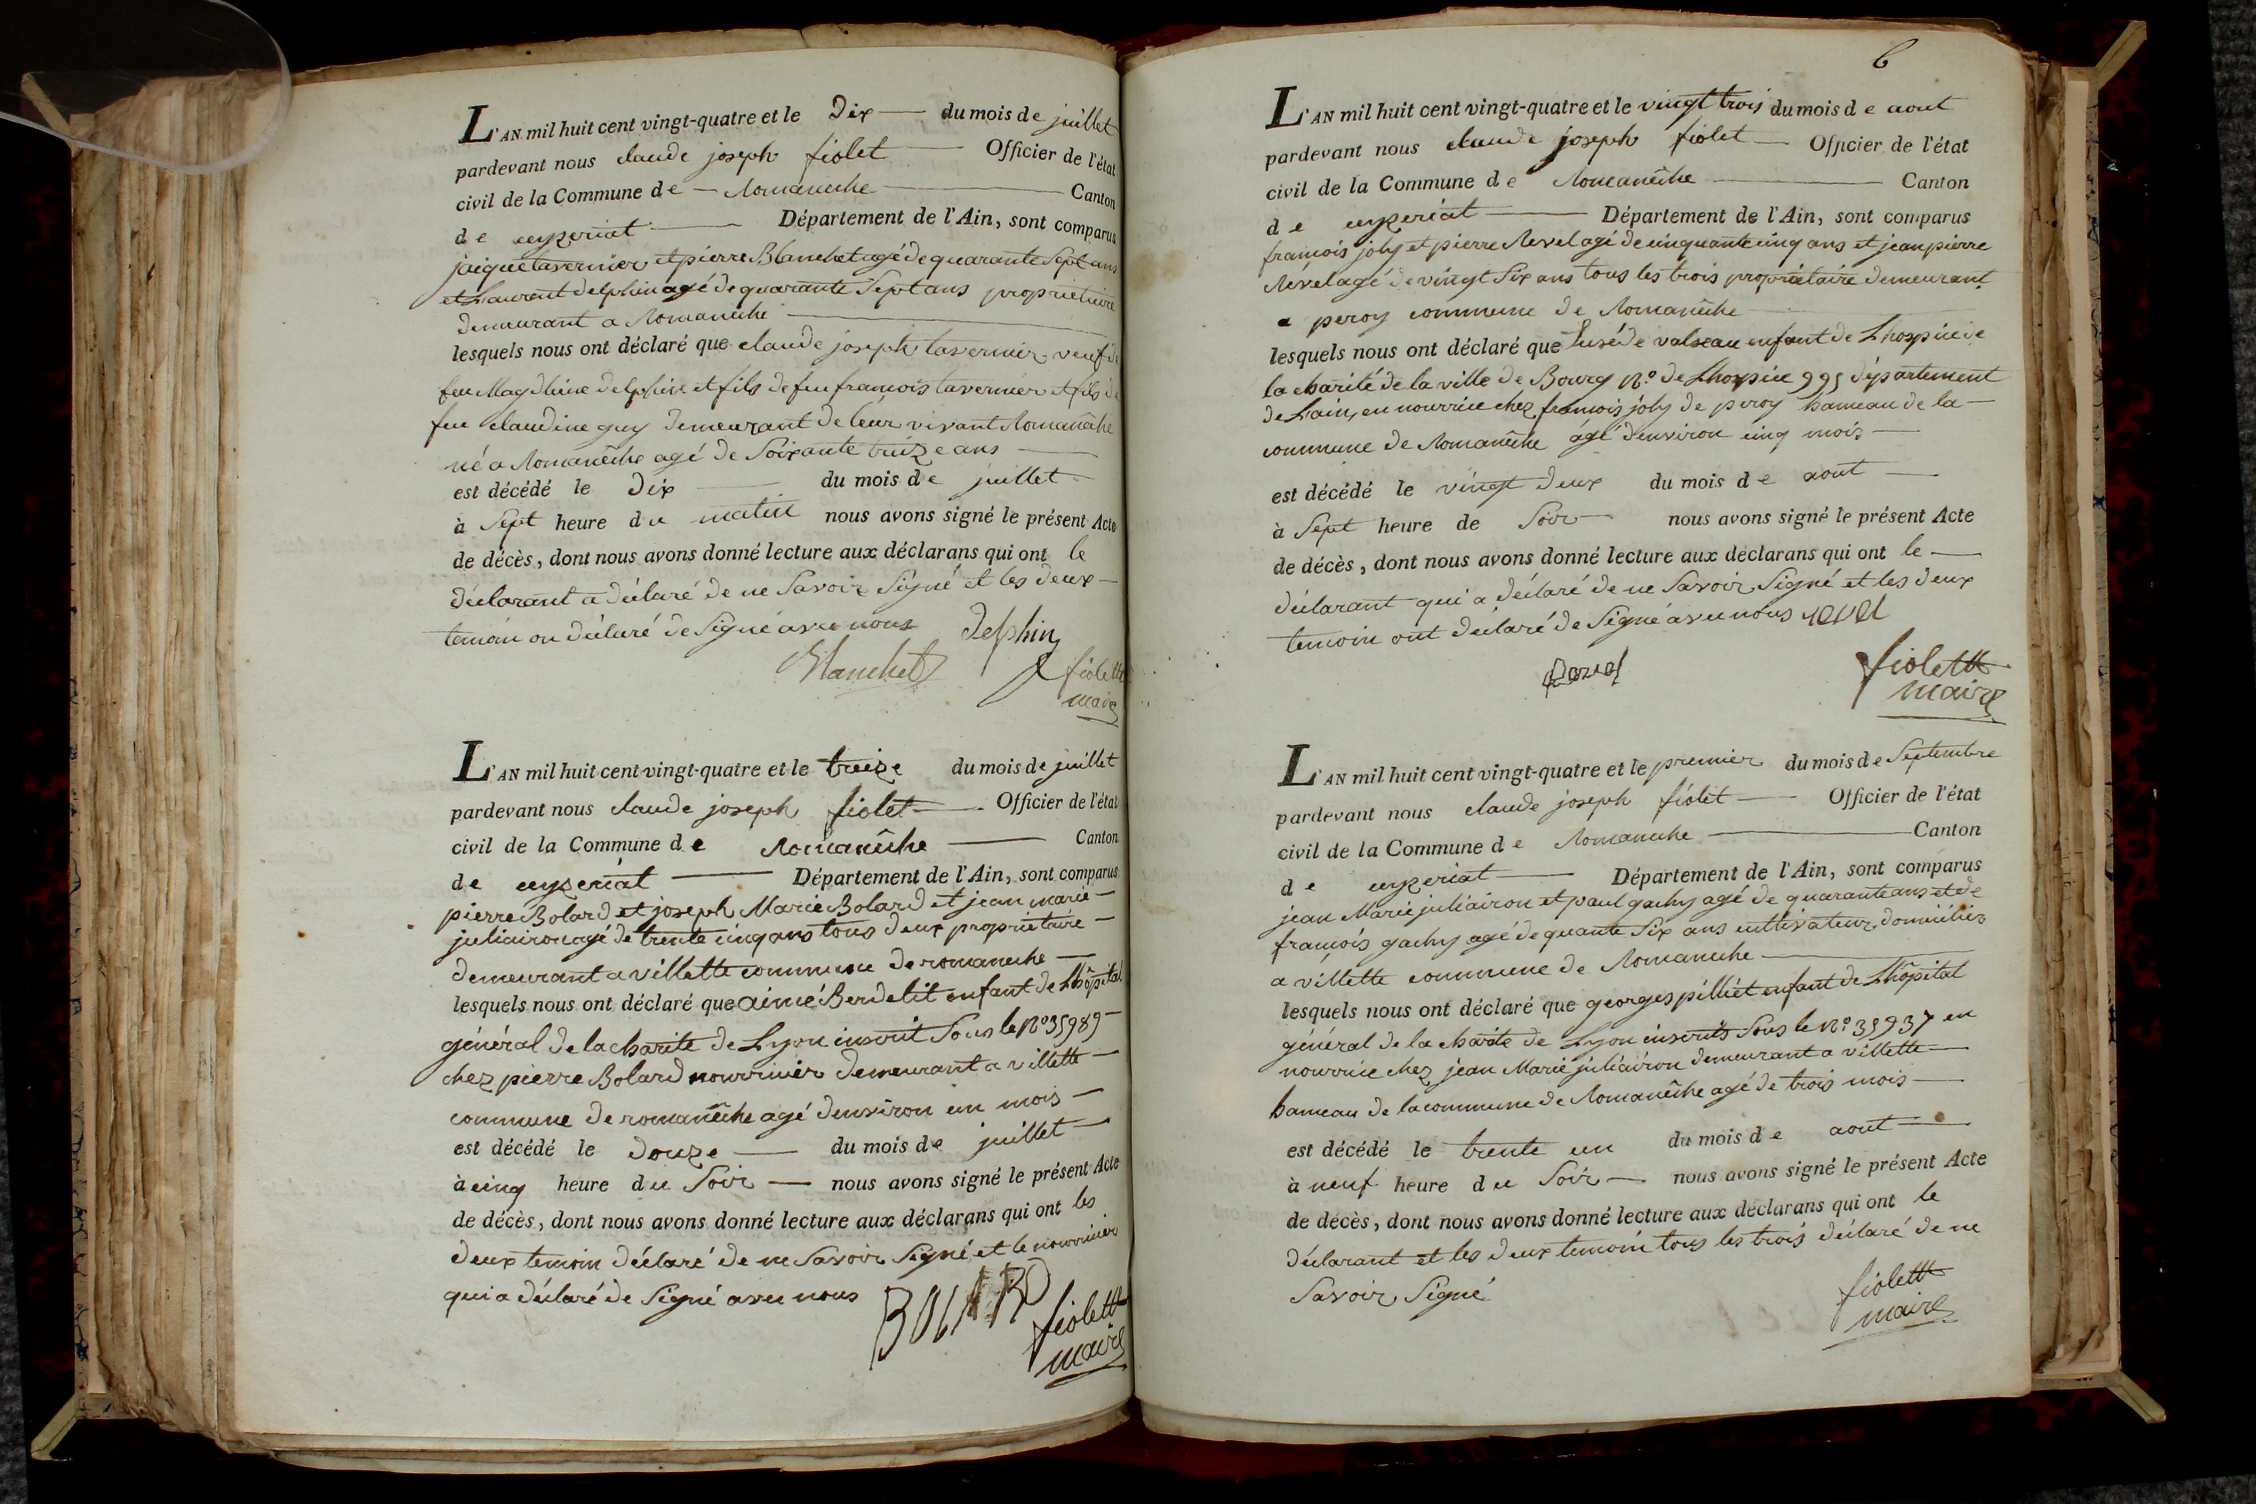 L'AN mil huit cent vingt-quatre et le Dix du mois de juillet
pardevant nous claude joseph fiolet Officier de l'état
civil de la Commune de Romanêche Canton
de ceyzeriat Département de l'Ain, sont comparus
jaique tavernier et pierre Blanchet agé de quarante Sept ans
et Laurent delphin agé de quarante Sept ans propriétaire
demeurant a Romanêche
lesquels nous ont déclaré que claude joseph tavernier veuf de
feu Magdleine delphin et fils de feu francois tavernier et fils de
feu claudine guy demeurant de leur vivant Romanêche
né a Romanêche agé de Soixante treize ans
est décédé le dix du mois de juillet
à Sept heure du matin nous avons signé le présent Acte
de décès, dont nous avons donné lecture aux déclarans qui ont le
déclarant a déclaré de ne Savoir Signé et les deux
temoin on déclaré de Signé avec nous delphin
Blanchet fiolett
maire
L'AN mil huit cent vingt-quatre et le treize du mois de juillet
pardevant nous claude joseph fiolet Officier de l'état
civil de la Commune de Romanêche Canton
de ceyzeriat Département de l'Ain, sont comparus
pierre Bolard et joseph Marie Bolard et jean marie
juliairon agé de trente cinq ans tous deux propriétaire
demeurant a villette commune de romaneche
lesquels nous ont déclaré que aimé Berdelit enfant de Lhôpital
général de la charité de Lyon inscrit Sous le No 35989
chez pierre Bolard nourricier demeurant a villette
commune de romanêche agé denviron un mois
est décédé le douze du mois de juillet
à cinq heure du Soir nous avons signé le présent Acte
de décès, dont nous avons donné lecture aux déclarans qui ont les
deux temoin déclaré de ne Savoir Signé et le nourricier
qui a déclaré de Signé avec nous BOLARD
fiolett
maire
6
L'AN mil huit cent vingt-quatre et le vingt trois du mois de aout
pardevant nous claude joseph fiolet Officier de l'état
civil de la Commune de Romanêche Canton
de ceyzeriat Département de l'Ain, sont comparus
francois joly et pierre Revel agé de cinquante cinq ans et jean pierre
Révél agé de vingt Six ans tous les trois propriétaire demeurant
a peroy commune de Romanêche
lesquels nous ont déclaré que de valseau enfant de Lhospice de
la charité de la ville de Bourg No de Lhospice 995 département
de Lain, en nourrice chez francois joly de peroy hameau de la
commune de Romanêche agé denviron cinq mois
est décédé le vingt deux du mois de aout
à Sept heure de Soir nous avons signé le présent Acte
de décès, dont nous avons donné lecture aux déclarans qui ont le
déclarant qui a déclaré de ne Savoir Signé et les deux
temoin ont déclaré de Signé avec nous revel
Revel fiolett
maire
L'AN mil huit cent vingt-quatre et le premier du mois de Septembre
pardevant nous claude joseph fiolet Officier de l'état
civil de la Commune de Romaneche Canton
de ceyzeriat Département de l'Ain, sont comparus
jean Marie juliairon et paul gachy agé de quarante ans et de
francois gachy agé de quante Six ans cultivateur domiciliés
a villette commune de Romaneche
lesquels nous ont déclaré que georges pilliét enfant de Lhôpital
général de la charité de Lyon inscrits Sous le No 35937 en
nourrice chez jean Marie juliairon demeurant a villette
hameau de la commune de Romanêche agé de trois mois
est décédé le trente un du mois de aout
à neuf heure du Soir nous avons signé le présent Acte
de décès, dont nous avons donné lecture aux déclarans qui ont le
déclarant et les deux temoin tous les trois déclaré de ne
Savoir Signé fiolett
maire